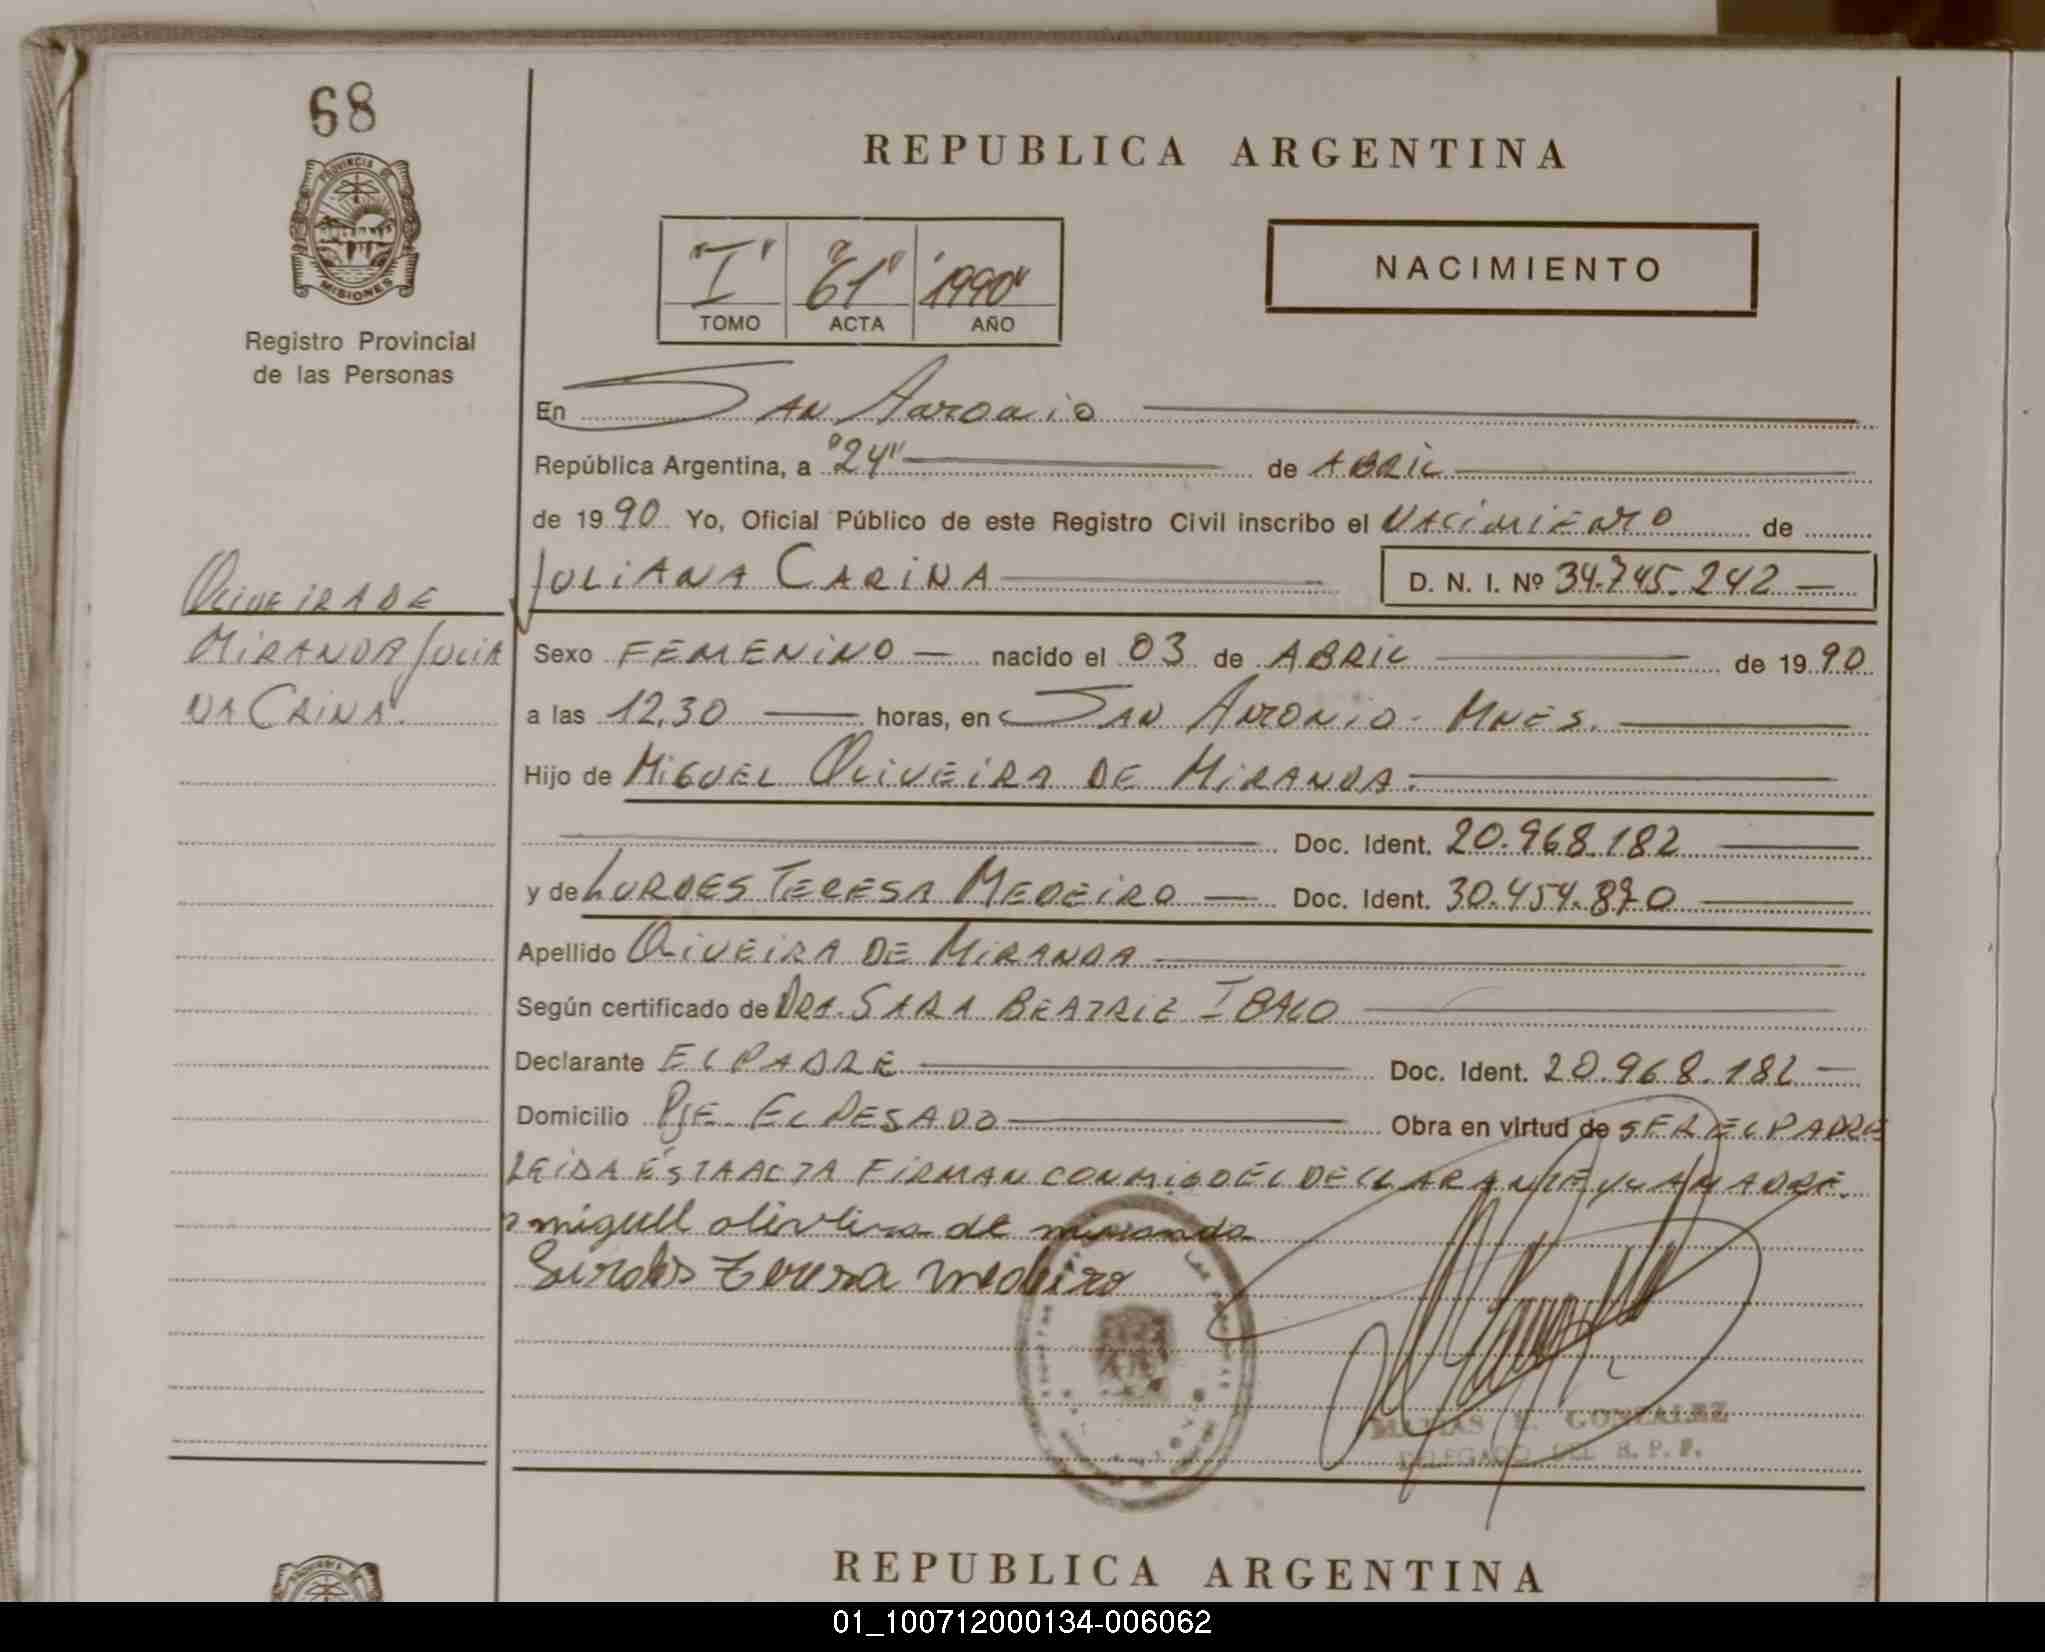 68
PROVINCIA DE
MISIONES
Registro Provincial
de las Personas
REPUBLICA ARGENTINA
"I" "61" "1990"
TOMO ACTA AÑO
NACIMIENTO
En San Antonio
República Argentina, a "24" de ABRIL
de 1990 Yo, Oficial Público de este Registro Civil inscribo el NACIMIENTO de
JULIANA CARINA D. N. I. Nº 34.745.242
OLIVEIRA DE
MIRANDA JULIA
NA CRINA.
Sexo FEMENINO nacido el 03 de ABRIL de 1990
a las 12,30 horas, en SAN ANTONIO - MNES.
Hijo de MIGUEL OLIVEIRA DE MIRANDA.
Doc. Ident. 20.968.182
y de LURDES TERESA MEDEIRO Doc. Ident. 30.454.870
Apellido OLIVEIRA DE MIRANDA
Según certificado de DRA. SARA BEATRIZ
Declarante EL PADRE Doc. Ident. 20.968.182
Domicilio PJE. EL PESADO Obra en virtud de SER EL PADRE
LEIDA ESTA ACTA FIRMAN CONMIGO EL DECLARANTE Y LA MADRE.
miguel oliveira de miranda
Lurdes teresa medeiro
GONZALEZ
DELEGADO DEL R.P.P.
REPUBLICA ARGENTINA
01_100712000134-006062